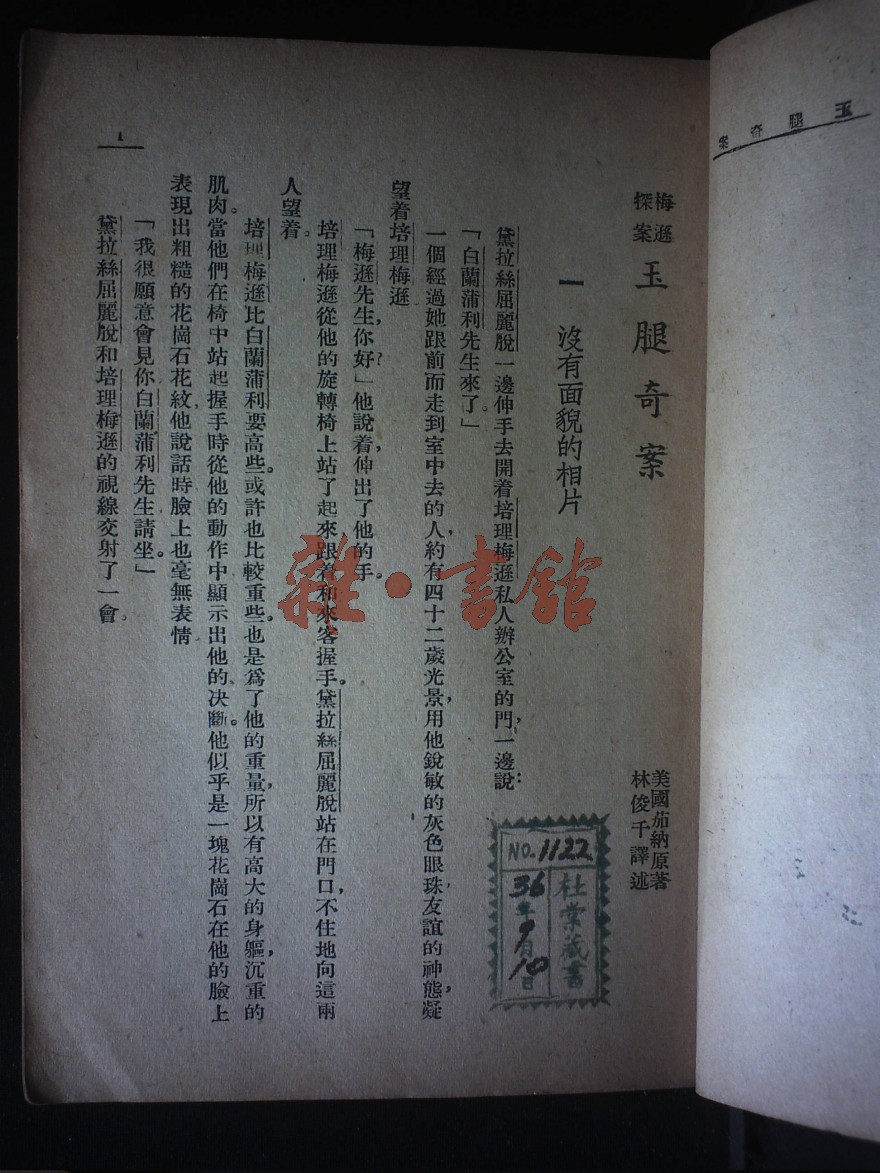 玉腿奇案
梅遜探案 玉腿奇案
美國茄納原著
林俊千譯述
一 沒有面貌的相片
黛拉絲屈麗脫一邊伸手去開着培理梅遜私人辦公室的門,一邊說:
「白蘭蒲利先生來了。」
一個經過她跟前而走到室中去的人,約有四十二歲光景,用他銳敏的灰色眼珠友誼的神態,凝
望着培理梅遜
「梅遜先生,你好?」他說着,伸出了他的手。
培理梅遜從他的旋轉椅上站了起來跟着和來客握手。黛拉絲屈麗脫站在門口,不住地向這兩
人望着。
培理梅遜比白蘭蒲利要高些。或許也比較重些。也是爲了他的重量,所以有高大的身軀,沉重的
肌肉。當他們在椅中站起握手時從他的動作中顯示出他的決斷。他似乎是一塊花崗石在他的臉上
表現出粗糙的花崗石花紋他說話時臉上也毫無表情
「我很願意會見你白蘭蒲利先生請坐。」
黛拉絲屈麗脫和培理梅遜的視線交射了一會。
1
NO. 1122
杜棠藏書
36年9月10日
雜·書館